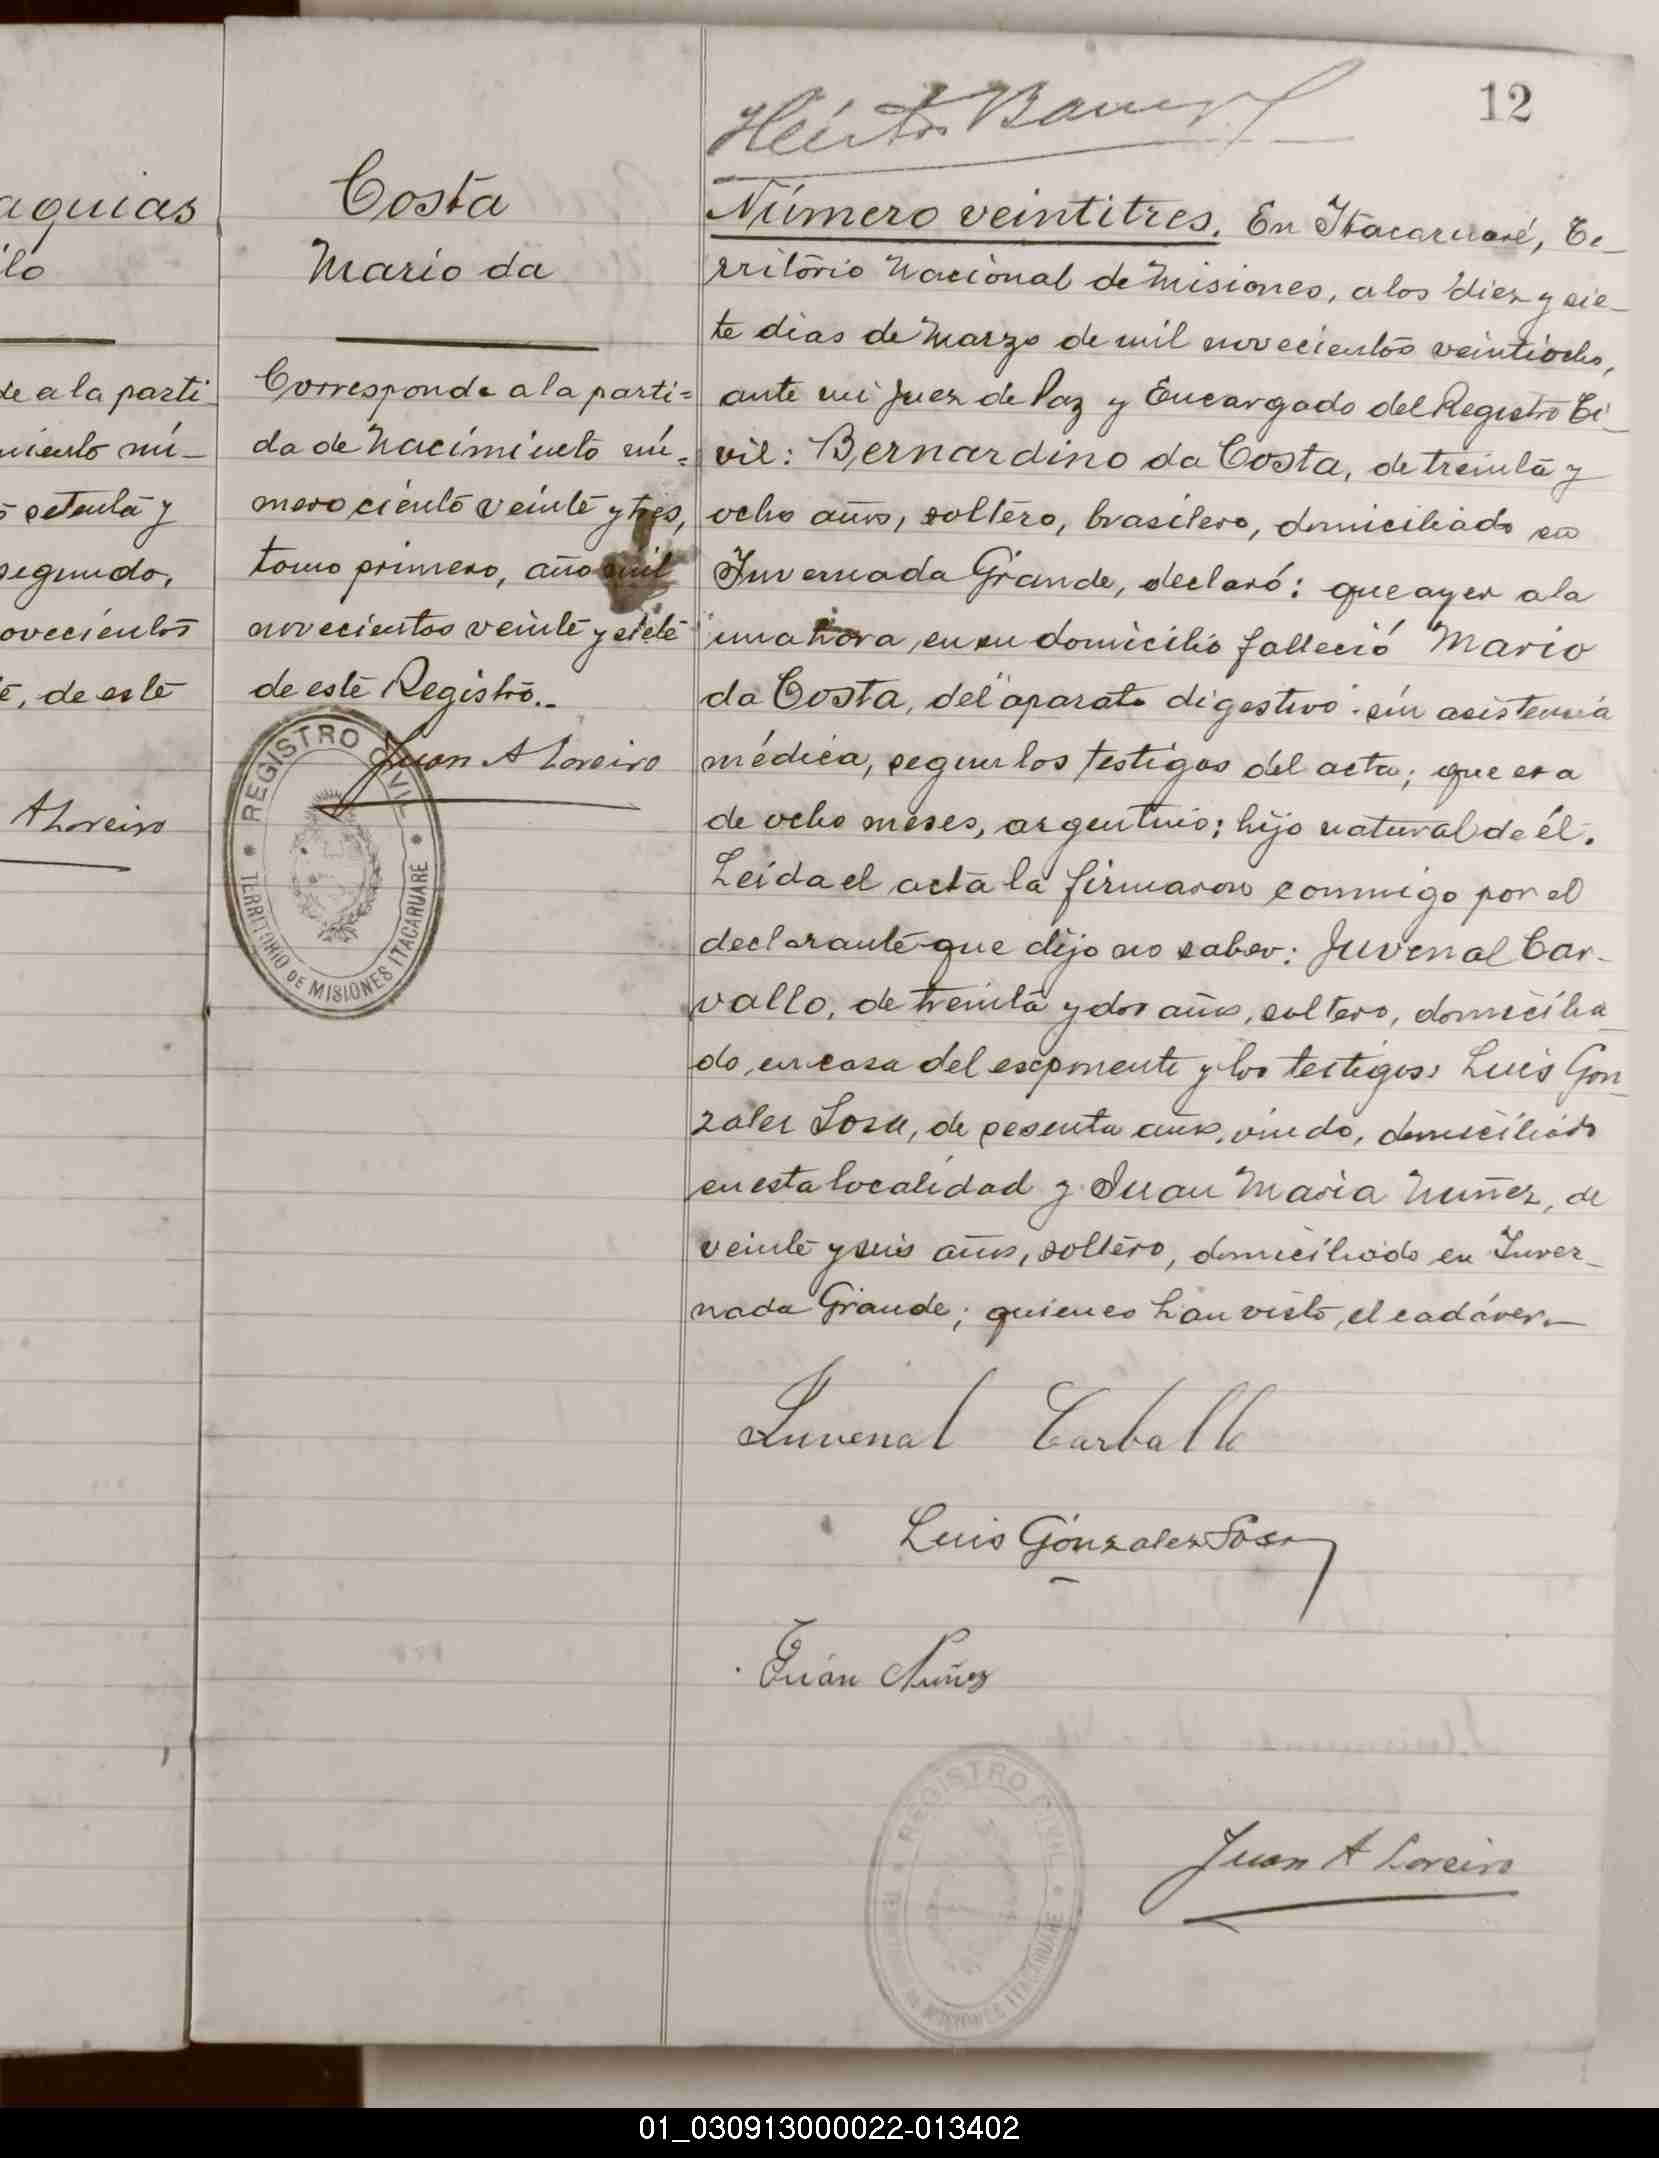 12
aquias
lo
de a la parti
miento nú-
setenta y
segundo,
ovecientos
é, de este
A Loreiro
Costa
Mario da
Corresponde a la parti=
da de Nacimiento nú=
mero ciento veinte y tres,
tomo primero, año mil
novecientos veinte y siete
de este Registro.-
Juan A Loreiro
REGISTRO CIVIL
TERRITORIO DE MISIONES ITACARUARE
Número veintitres. En Itacaruaré, Te-
rritório Nacional de Misiones, a los diez y sie-
te dias de Marzo de mil novecientos veintiocho,
ante mi Juez de Paz y Encargado del Registro Ci-
vil: Bernardino da Costa, de treinta y
ocho años, soltero, brasilero, domiciliado en
Invernada Grande, declaró: que ayer a la
una hora, en su domicilio falleció Mario
da Costa, del "aparato digestivo" sin asistencia
médica, segun los testigos del acta; que era
de ocho meses, argentino; hijo natural de él.
Leida el acta la firmaron conmigo por el
declarante que dijo no saber: Juvenal Car-
vallo, de treinta y dos años, soltero, domicilia-
do, en casa del esponente y los testigos: Luis Gon-
zalez Sosa, de sesenta años, viudo, domiciliado
en esta localidad y Juan Maria Nuñez, de
veinte y seis años, soltero, domiciliado en Inver-
nada Grande; quienes han visto, el cadáver.-
Juvenal Carballo
Luis Gonzalez Sosa
Juan Nuñez
REGISTRO CIVIL
MISIONES ITACARUARE
Juan A Loreiro
01_030913000022-013402